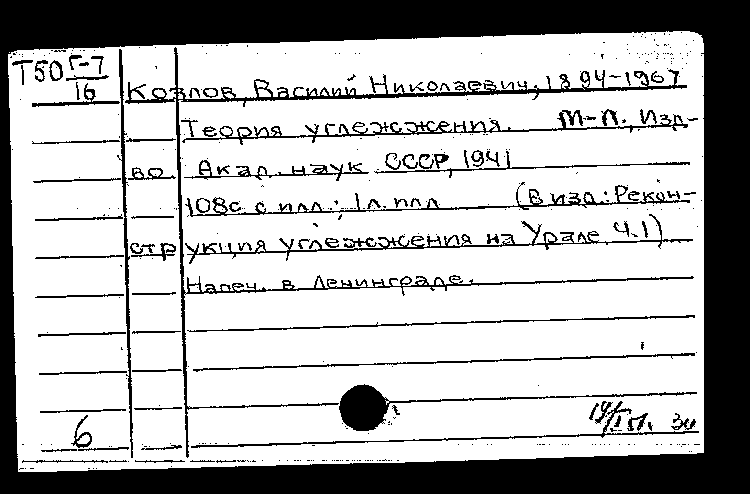 Т50 Г-7
16
Козлов, Василий Николаевич, 1894-1967
Теория углежжения. М-Л., Изд-
во Акад. наук СССР, 1941
108с. с илл.; 1л. илл (В изд.: Рекон-
струкция углежжения на Урале Ч.1)
Напеч. в Ленинграде.
6